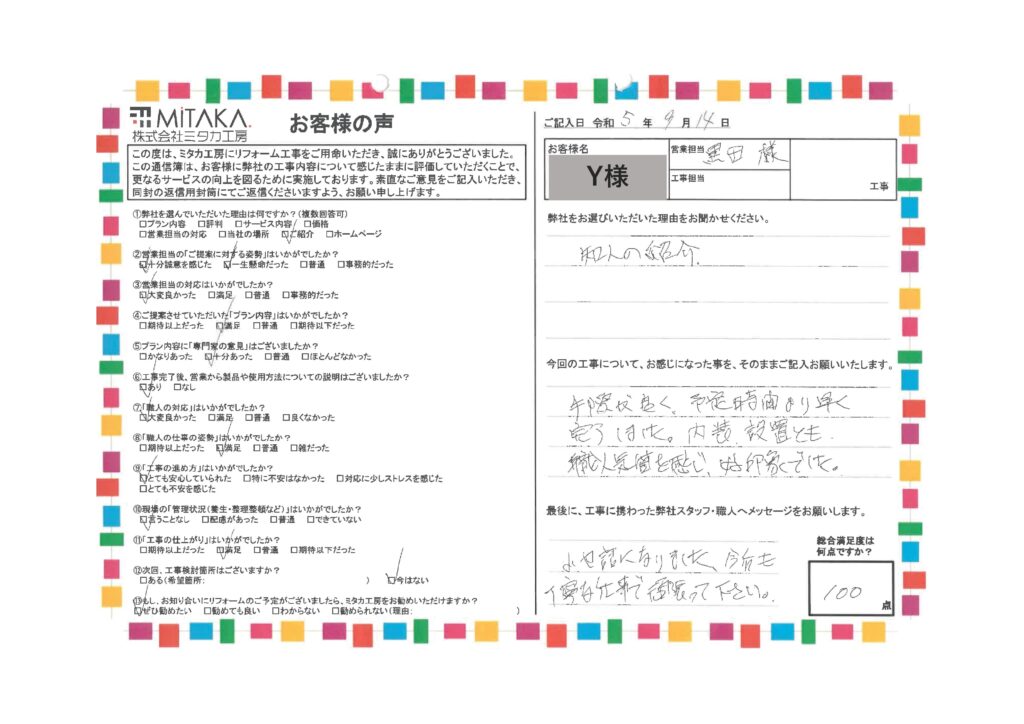 MiTAKA.
株式会社ミタカ工房
お客様の声
この度は、ミタカ工房にリフォーム工事をご用命いただき、誠にありがとうございました。
この通信簿は、お客様に弊社の工事内容について感じたままに評価していただくことで、
更なるサービスの向上を図るために実施しております。素直なご意見をご記入いただき、
同封の返信用封筒にてご返信くださいますよう、お願い申し上げます。
①弊社を選んでいただいた理由は何ですか？(複数回答可)
□プラン内容 □評判 □サービス内容 □価格
□営業担当の対応 □当社の場所 □ご紹介 □ホームページ
②営業担当の「ご提案に対する姿勢」はいかがでしたか？
□十分誠意を感じた □一生懸命だった □普通 □事務的だった
③営業担当の対応はいかがでしたか？
□大変良かった □満足 □普通 □事務的だった
④ご提案させていただいた「プラン内容」はいかがでしたか？
□期待以上だった □満足 □普通 □期待以下だった
⑤プラン内容に「専門家の意見」はございましたか？
□かなりあった □十分あった □普通 □ほとんどなかった
⑥工事完了後、営業から製品や使用方法についての説明はございましたか？
□あり □なし
⑦「職人の対応」はいかがでしたか？
□大変良かった □満足 □普通 □良くなかった
⑧「職人の仕事の姿勢」はいかがでしたか？
□期待以上だった □満足 □普通 □雑だった
⑨「工事の進め方」はいかがでしたか？
□とても安心していられた □特に不安はなかった □対応に少しストレスを感じた
□とても不安を感じた
⑩現場の「管理状況(養生・整理整頓など)」はいかがでしたか？
□言うことなし □配慮があった □普通 □できていない
⑪「工事の仕上がり」はいかがでしたか？
□期待以上だった □満足 □普通 □期待以下だった
⑫次回、工事検討箇所はございますか？
□ある(希望箇所: ) □今はない
⑬もし、お知り合いにリフォームのご予定がございましたら、ミタカ工房をお勧めいただけますか？
□ぜひ勧めたい □勧めても良い □わからない □勧められない(理由: )
ご記入日 令和 5 年 9 月 14 日
お客様名
Y様
営業担当 黒田 様
工事担当
工事
弊社をお選びいただいた理由をお聞かせください。
知人の紹介
今回の工事について、お感じになった事を、そのままご記入お願いいたします。
手際が良く、予定時間より早く
完了した。内装、設置とも
職人気質を感じ、好印象でした。
最後に、工事に携わった弊社スタッフ・職人へメッセージをお願いします。
お世話になりました、今后も
丁寧な仕事で頑張って下さい。
総合満足度は
何点ですか？
100 点